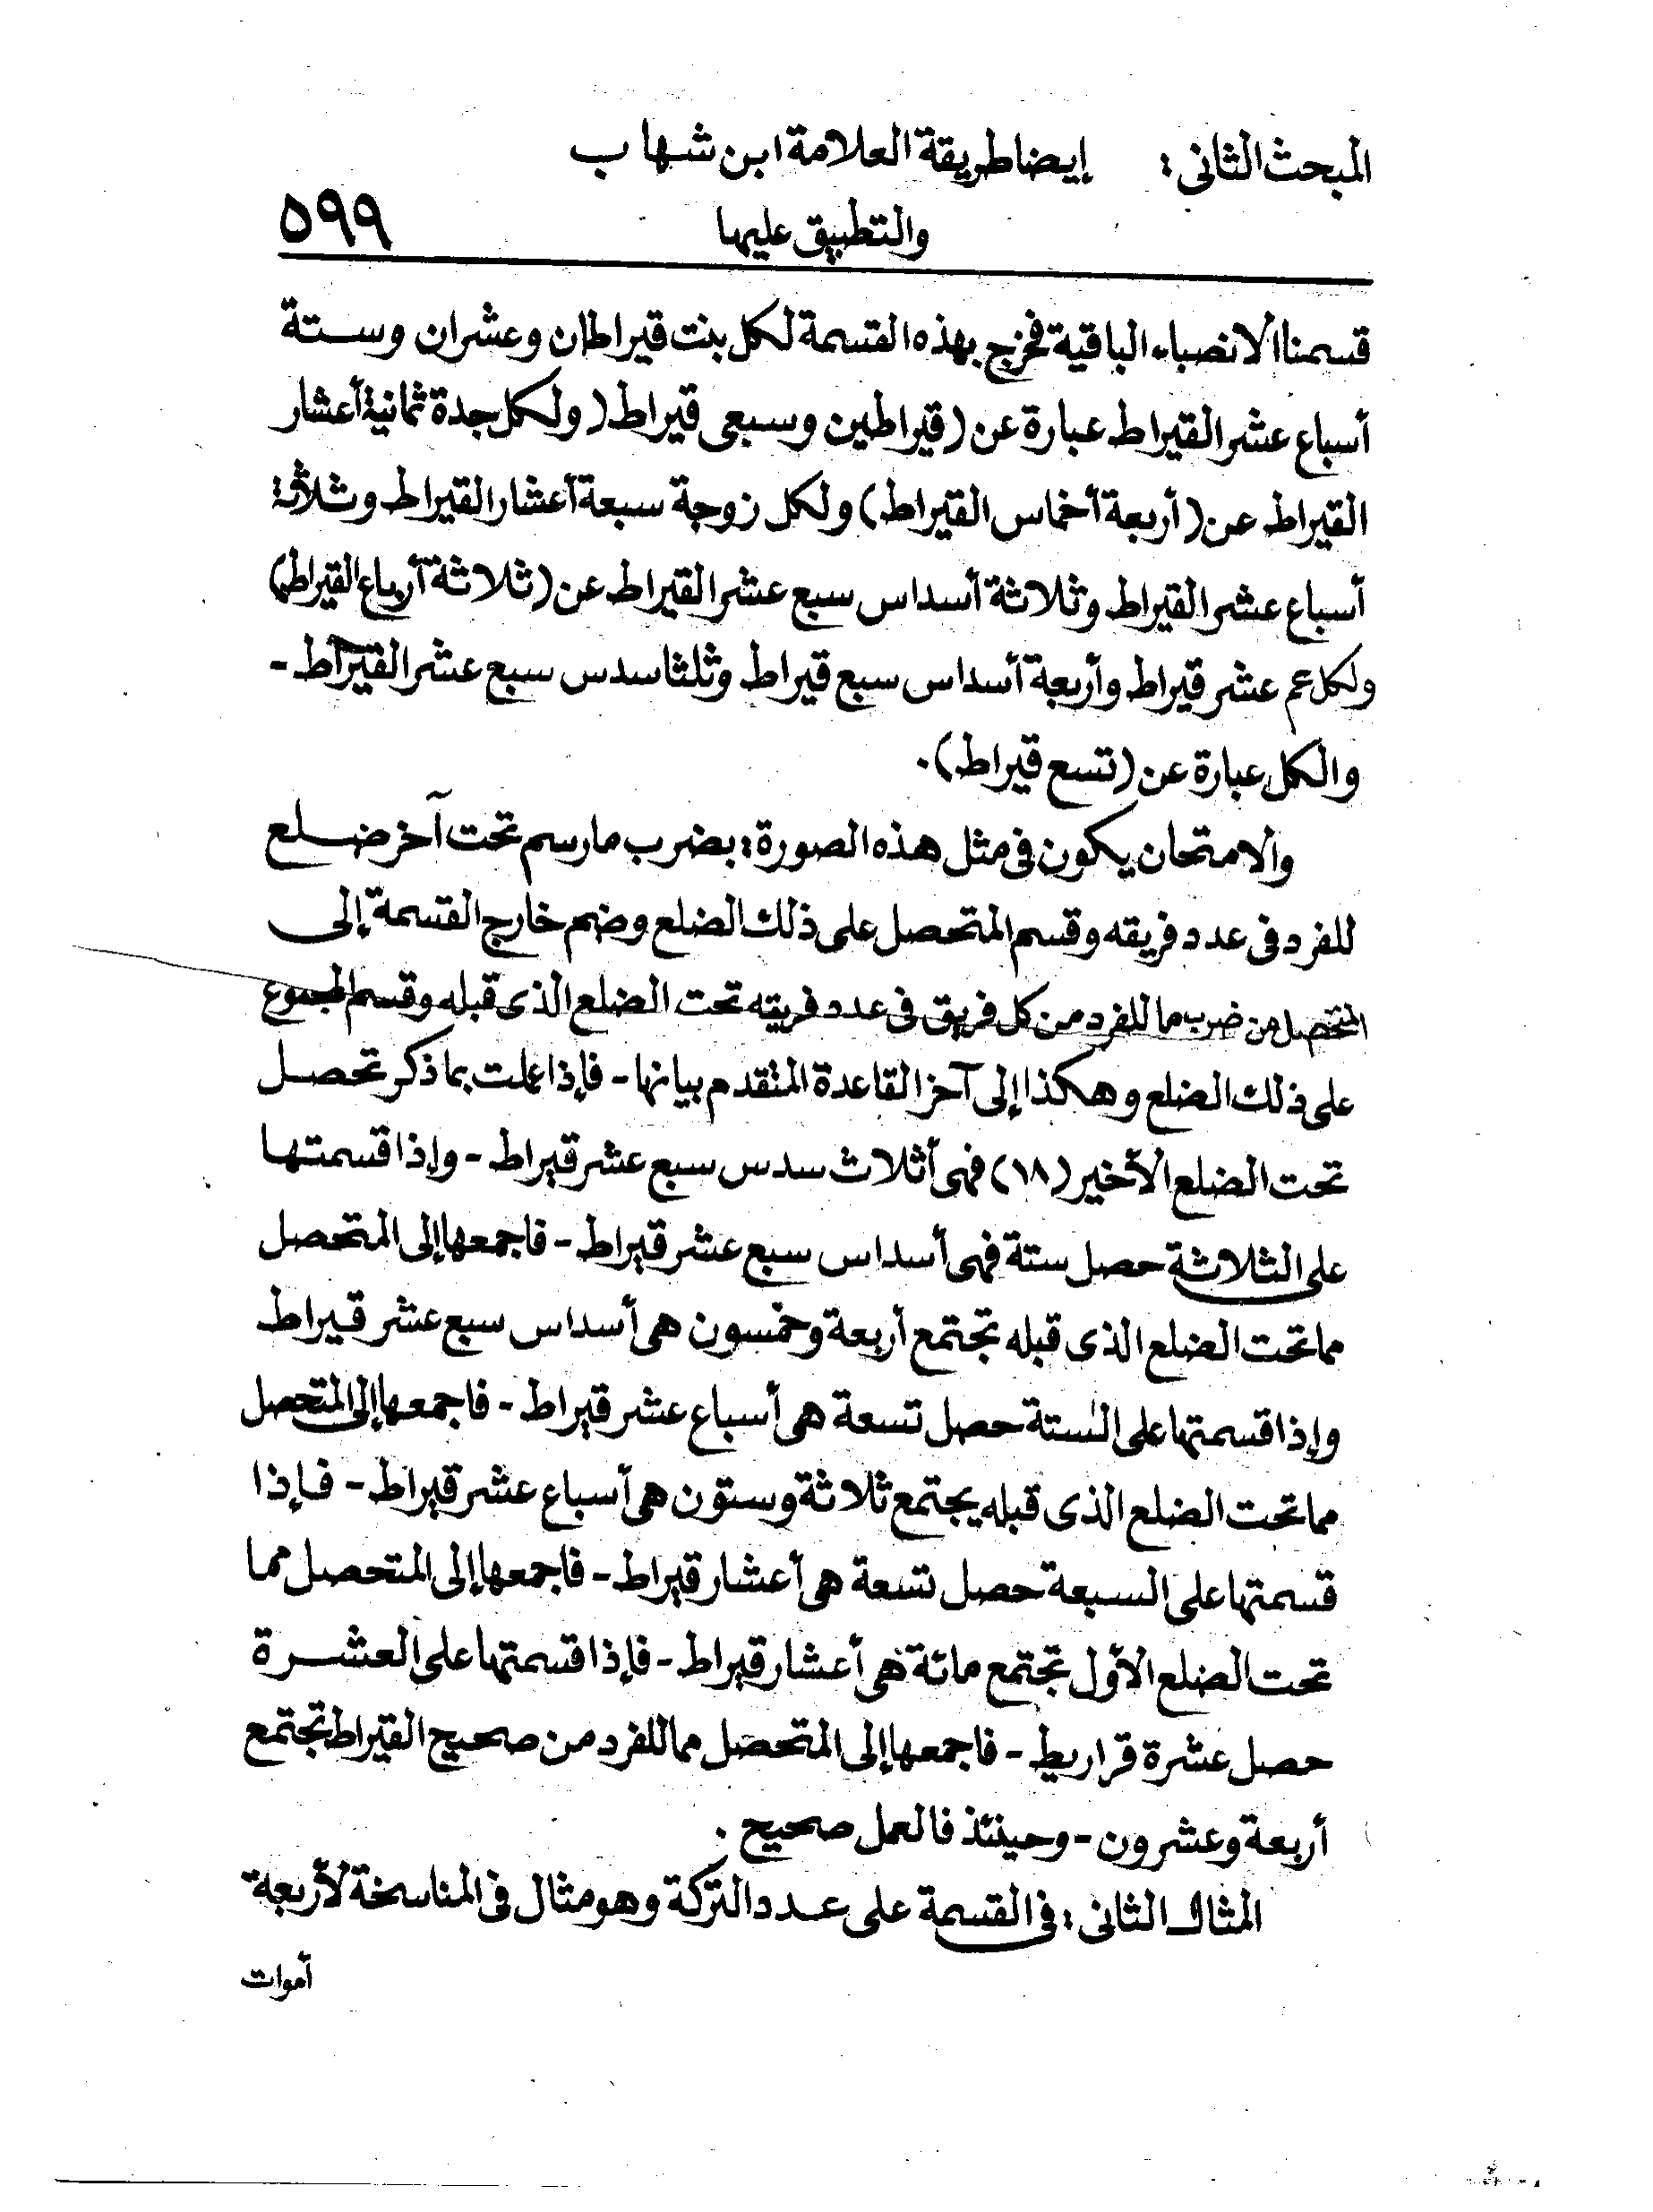 المبحث الثانى : إيضا طريقة العلامة ابن شهاب
والتطبيق عليها
٥٩٩
قسمنا الانصباء الباقية فخرج بهذه القسمة لكل بنت قيراطان وعشران وستة
أسباع عشر القيراط عبارة عن (قيراطين وسبعى قيراط( ولكل جدة ثمانية أعشار
القيراط عن (أربعة أخماس القيراط) ولكل زوجة سبعة أعشار القيراط وثلاثة
أسباع عشر القيراط وثلاثة أسداس سبع عشر القيراط عن (ثلاثة أرباع القيراط)
ولكل عم عشر قيراط وأربعة أسداس سبع قيراط وثلثا سدس سبع عشر القيراط -
والكل عبارة عن (تسع قيراط) .
والامتحان يكون فى مثل هذه الصورة : بضرب ما رسم تحت آخر ضلع
للفرد فى عدد فريقه وقسم المتحصل على ذلك الضلع وضم خارج القسمة إلى
المتحصل من ضرب ما للفرد من كل فريق فى عدد فريقه تحت الضلع الذى قبله وقسم المجموع
على ذلك الضلع وهكذا إلى آخر القاعدة المتقدم بيانها - فإذا عملت بما ذكر تحصل
تحت الضلع الأخير (١٨) فهى أثلاث سدس سبع عشر قيراط - وإذا قسمتها
على الثلاثة حصل ستة فهى أسداس سبع عشر قيراط - فاجمعها إلى المتحصل
مما تحت الضلع الذى قبله تجتمع أربعة وخمسون هى أسداس سبع عشر قيراط
وإذا قسمتها على الستة حصل تسعة هى أسباع عشر قيراط - فاجمعها إلى المتحصل
مما تحت الضلع الذى قبله يجتمع ثلاثة وستون هى أسباع عشر قيراط - فإذا
قسمتها على السبعة حصل تسعة هى أعشار قيراط - فاجمعها إلى المتحصل مما
تحت الضلع الأول تجتمع مائة هى أعشار قيراط - فإذا قسمتها على العشرة
حصل عشرة قراريط - فاجمعها إلى المتحصل مما للفرد من صحيح القيراط تجتمع
أربعة وعشرون - وحينئذ فالعمل صحيح .
المثال الثانى : فى القسمة على عدد التركة وهو مثال فى المناسخة لأربعة
أموات